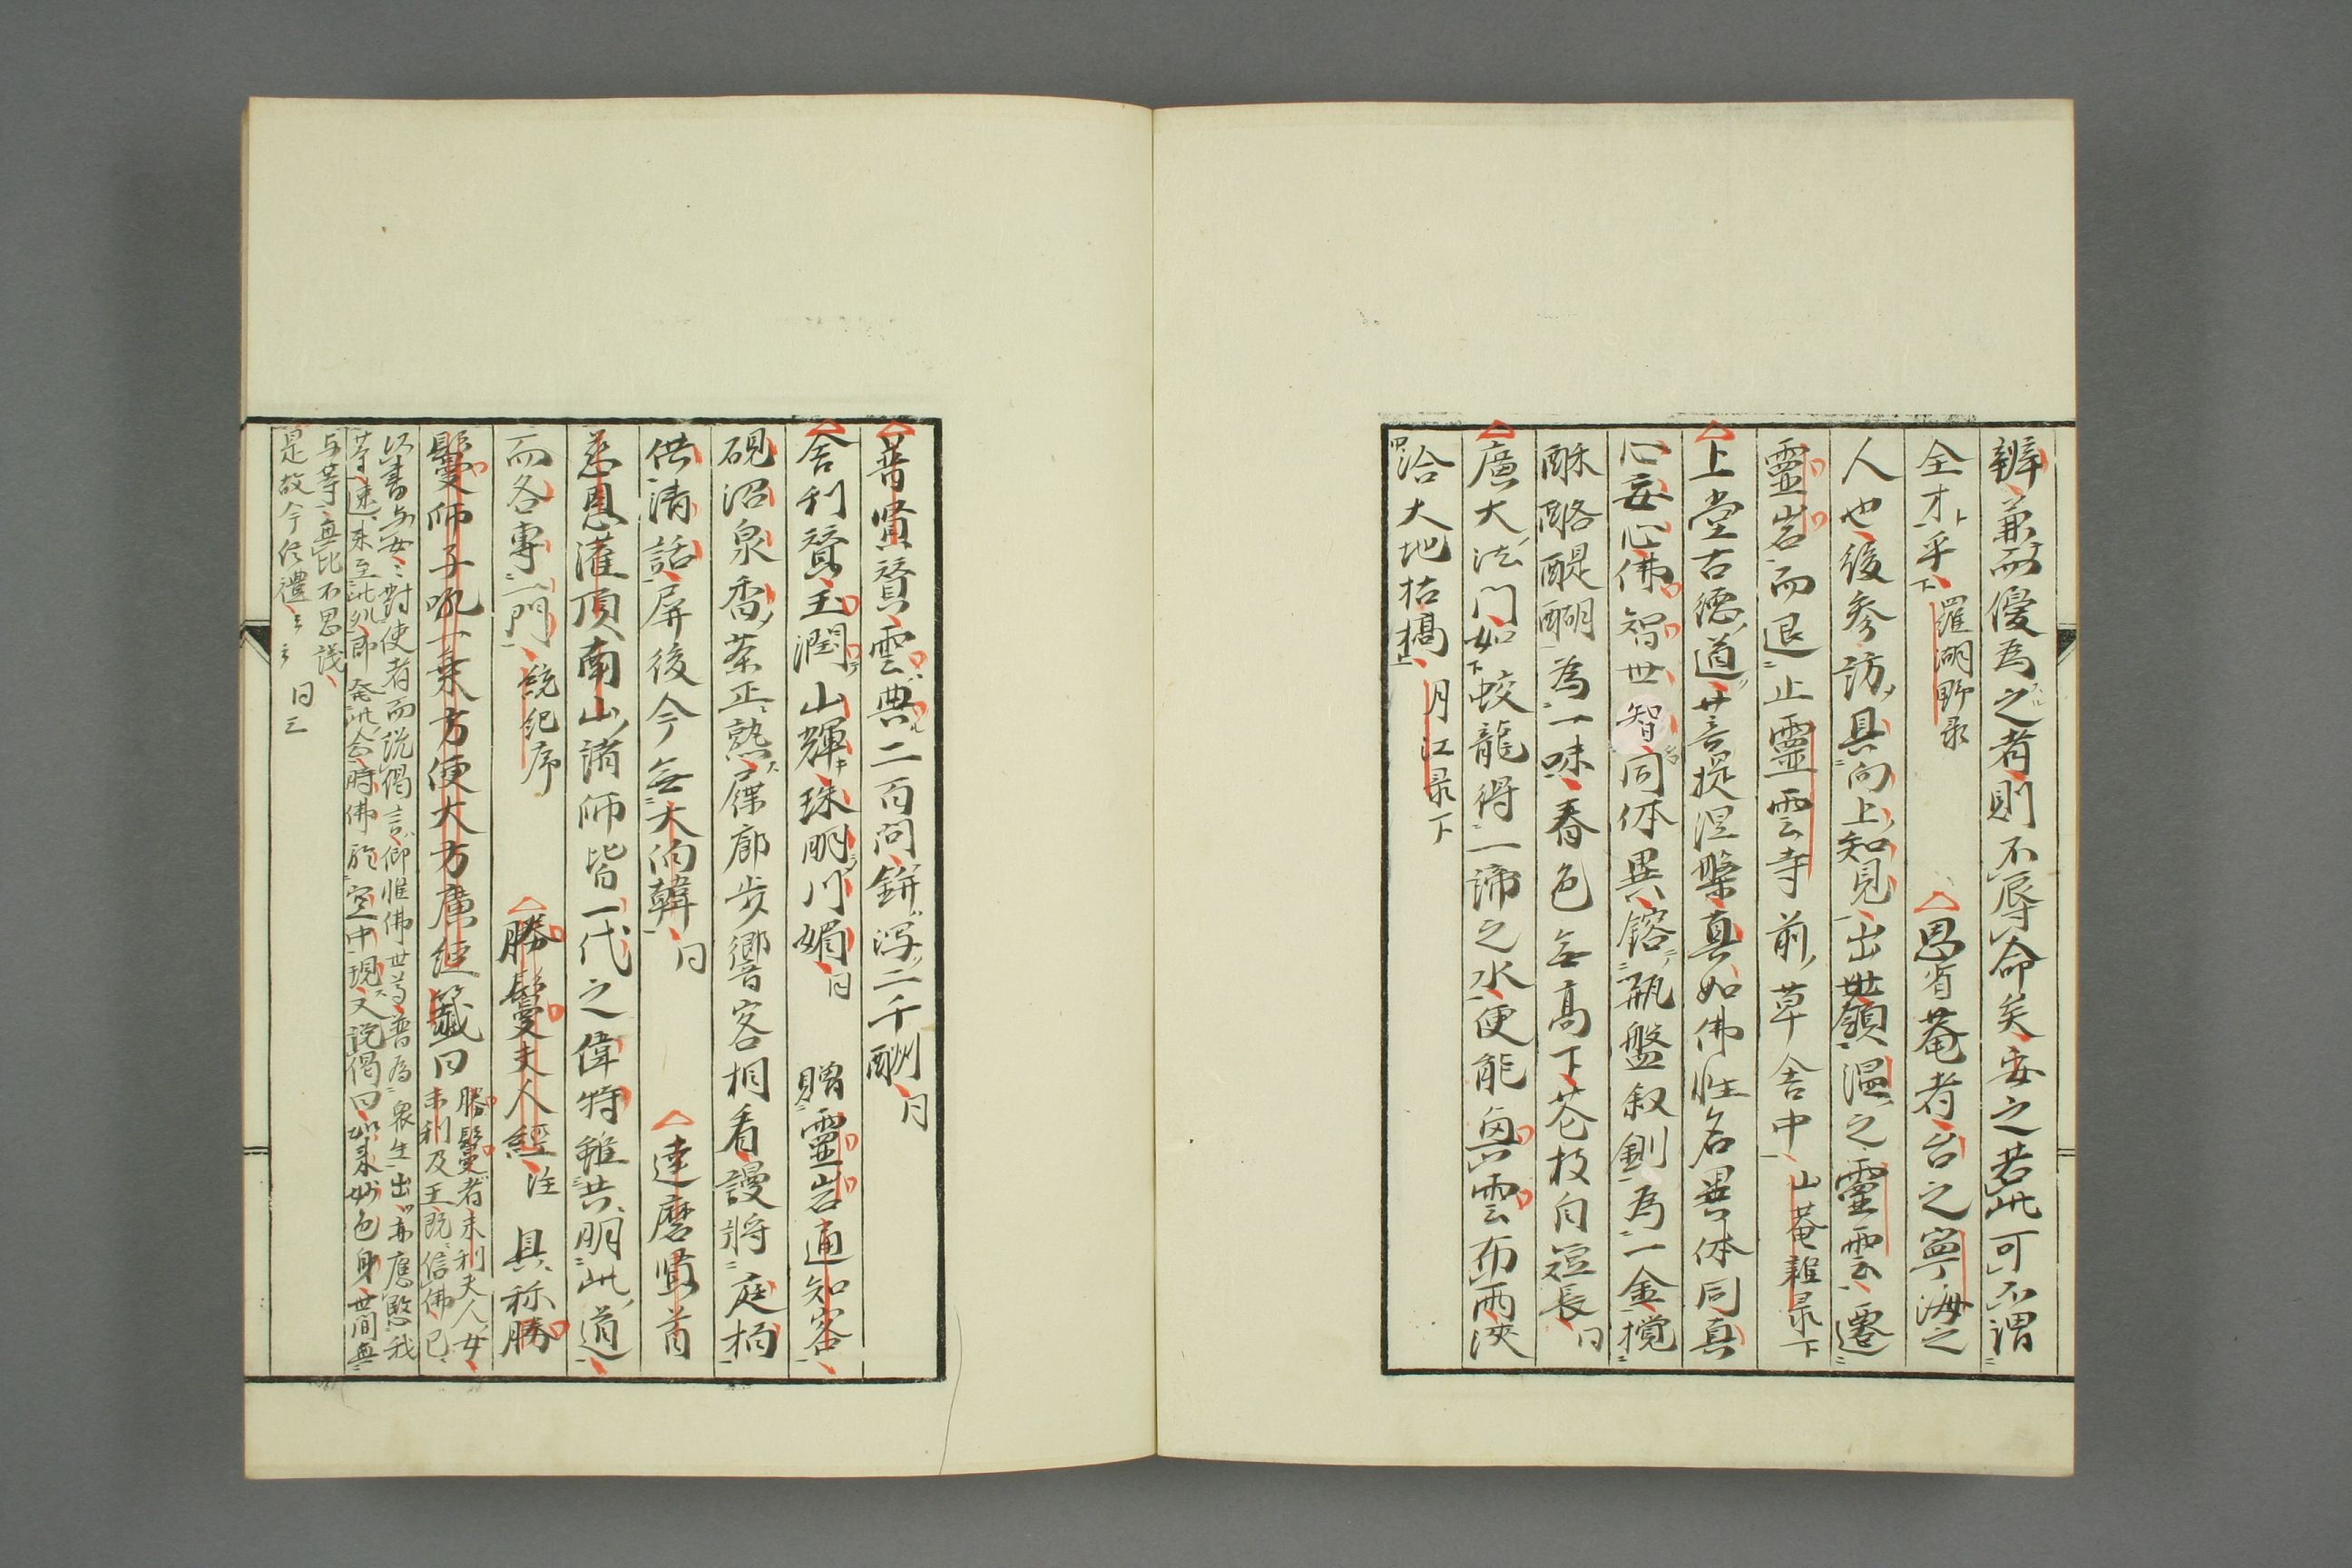 辨兼而優為之者則不辱命矣安之若此可不謂
全才乎 羅湖野录 △思省菴者台之寧海之
人也後参訪具向上知見出世嶺温之靈雲遷
靈岩而退止靈雲寺前草舎中 山菴雜录下
△上堂古德道菩提涅槃真如佛性名異体同真
心妄心佛智世智同体異鎔瓶盤釵釧為一金攪
酥酪醍醐為一味春色無高下花枝自短長 同
△廣大法門如蛟龍得一諦之水便能興雲布雨浹
洽大地枯槁 月江录下
△普賢賛雲興二百問鉼瀉二千酬 同
△舎利賛玉潤山輝珠明川媚 同 贈靈岩通知客
硯沼泉香茶正熟屧廊步響客相看謾將庭柏
供清話屏後今無大向韓 同 △達磨賢首
慈恩灌頂南山諸師皆一代之偉特雖共明此道
而各專一門 統紀序 △勝鬘夫人經 注 具称勝
鬘師子吼一乗方便大方廣経籖曰 勝鬘者末利夫人女
末利及王既信佛已
以書与女女對使者而説偈言仰惟佛世尊普為衆生出亦應愍我
等速来至此処即発此念時佛於空中現又説偈曰如来妙色身世間無
与等無比不思議
是故今信禮云云 同三